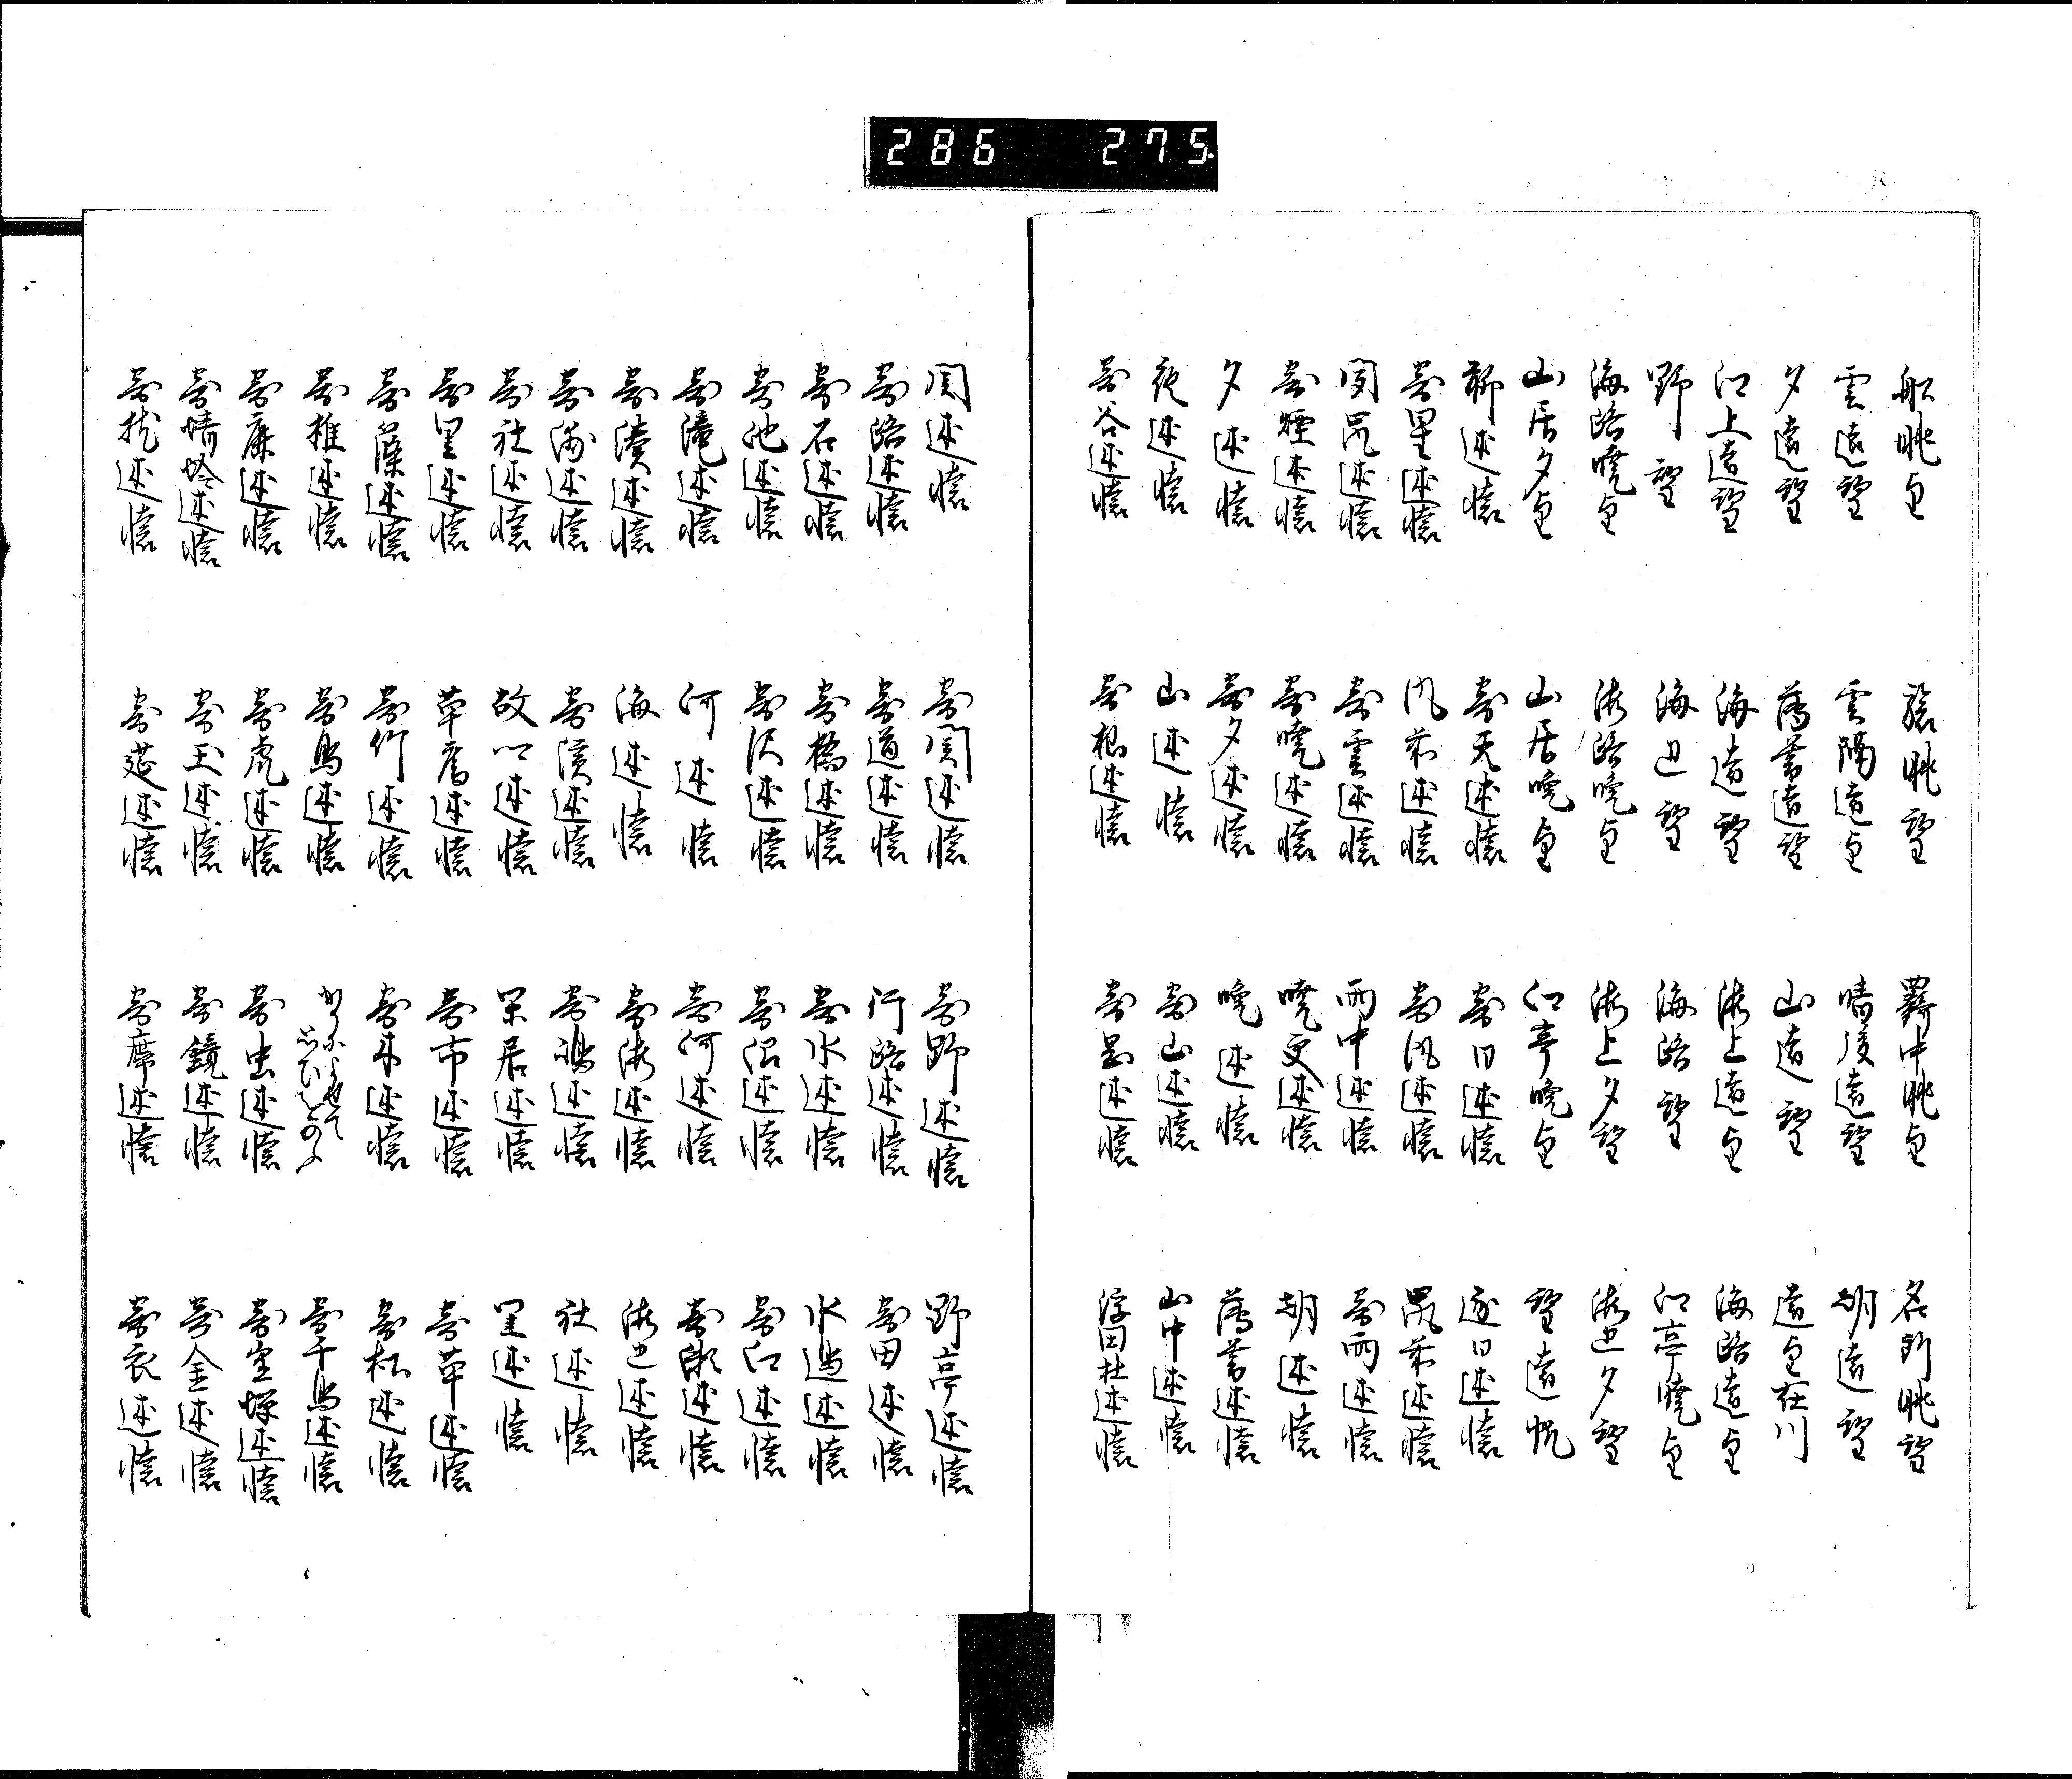 286 275
船眺望 旅眺望 羇中眺望 名所眺望
雲遠望 雲隔遠望 晴後遠望 朝遠望
夕遠望 薄暮遠望 山遠望 遠望在川
江上遠望 海遠望 海上遠望 海路遠望
野望 海辺望 海路望 江亭暁望
海路暁望 海路晩望 海上夕望 海辺夕望
山居夕望 山居晩望 江亭晩望 望遠帆
聊述懐 寄天述懐 寄日述懐 逐日述懐
寄星述懐 風前述懐 寄風述懐 嵐前述懐
聞嵐述懐 寄雲述懐 雨中述懐 寄雨述懐
寄煙述懐 寄暁述懐 暁更述懐 朝述懐
夕述懐 寄夕述懐 晩述懐 薄暮述懐
夜述懐 山述懐 寄山述懐 山中述懐
寄谷述懐 寄杣述懐 述懐 浮田杜述懐
関述懐 寄関述懐 寄野述懐 野亭述懐
寄路述懐 寄道述懐 行路述懐 寄田述懐
寄石述懐 寄橋述懐 寄水述懐 水鳥述懐
寄池述懐 寄沢述懐 寄沼述懐 寄江述懐
寄滝述懐 河述懐 寄河述懐 寄瀬述懐
寄湊述懐 海述懐 寄海述懐 海辺述懐
寄浦述懐 寄浜述懐 寄嶋述懐 社述懐
寄社述懐 故郷述懐 閑居述懐 里述懐
寄里述懐 草庵述懐 寄市述懐 寄草述懐
寄藻述懐 寄竹述懐 寄木述懐 寄松述懐
寄椎述懐 寄鳥述懐 かりによせて思ひをのふ 寄千鳥述懐
寄鹿述懐 寄虎述懐 寄虫述懐 寄空蝉述懐
寄蜻蛉述懐 寄玉述懐 寄鏡述懐 寄金述懐
寄枕述懐 寄莚述懐 寄席述懐 寄衣述懐